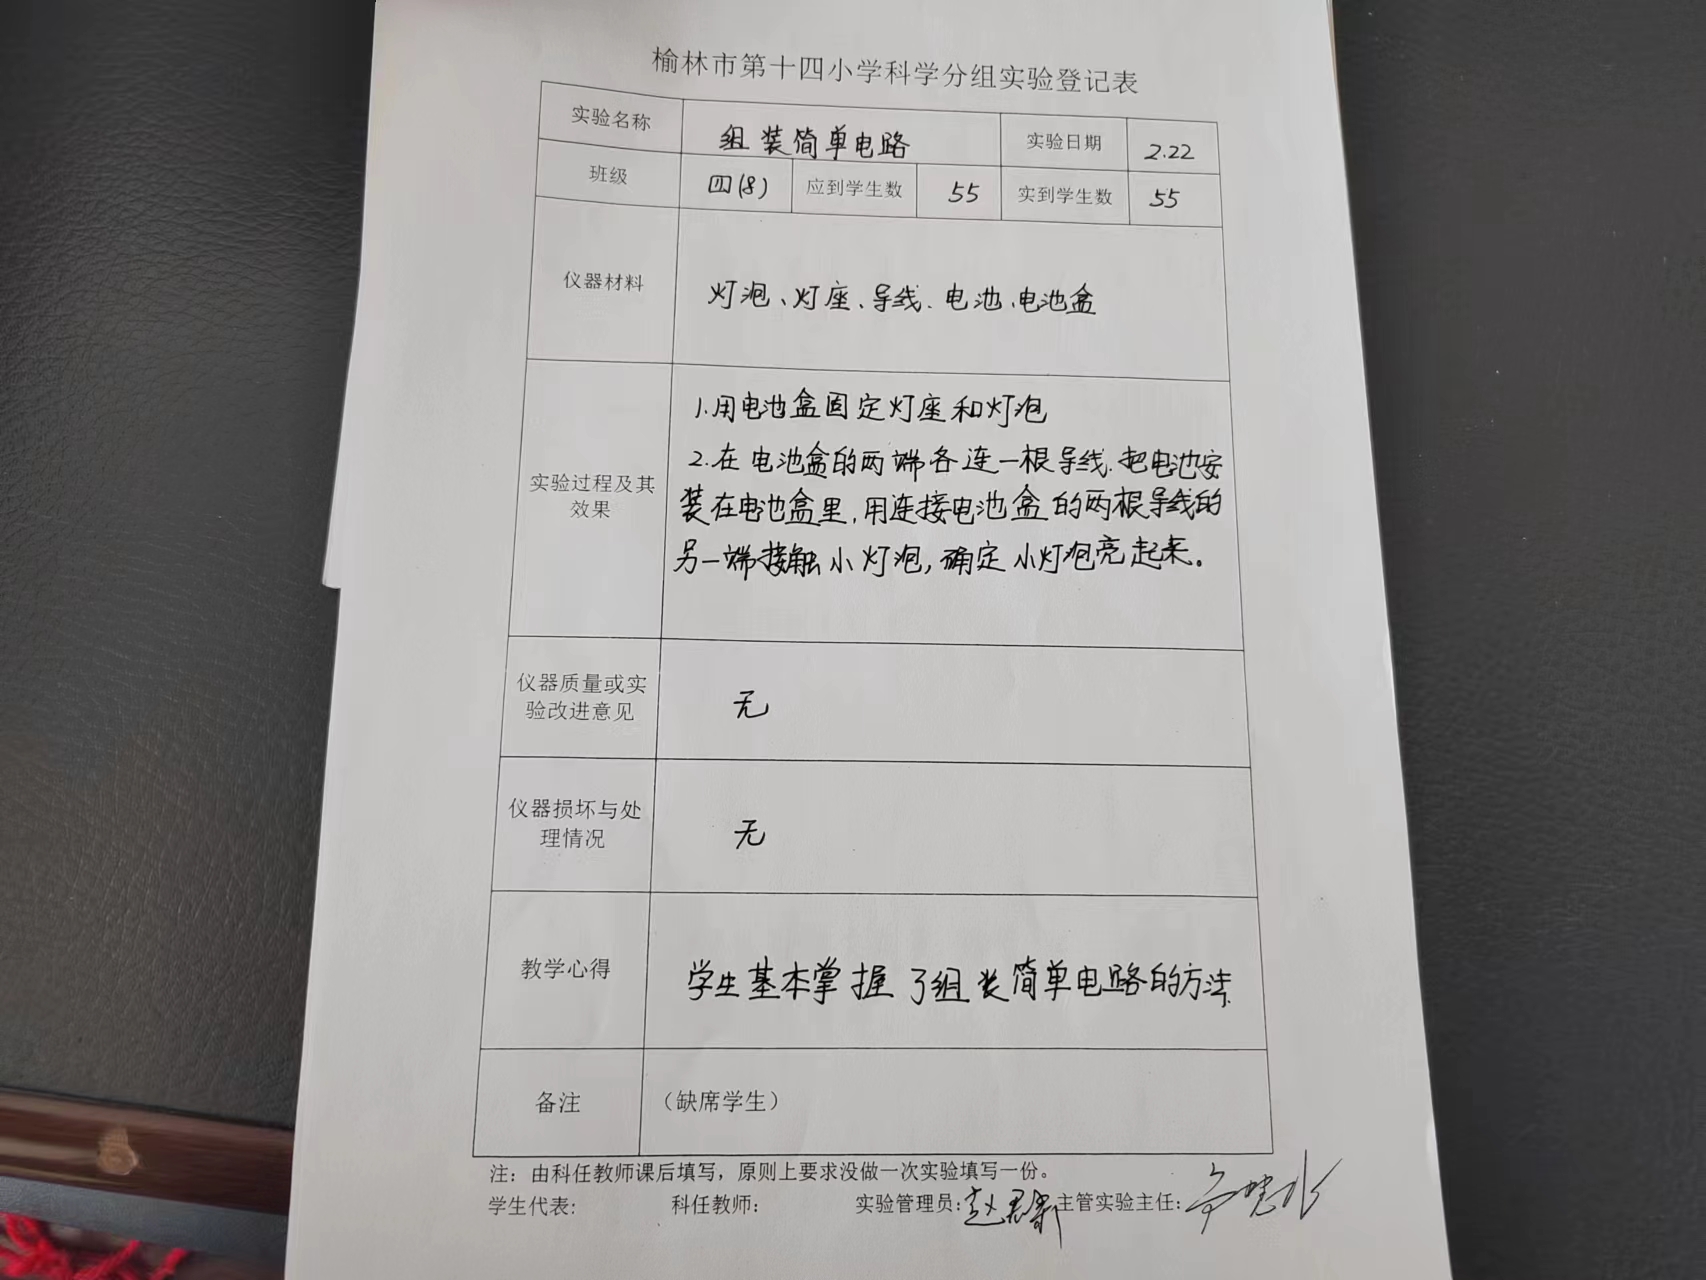 榆林市第十四小学科学分组实验登记表
实验名称 组装简单电路 实验日期 2.22
班级 四(8) 应到学生数 55 实到学生数 55
仪器材料 灯泡、灯座、导线、电池、电池盒
1.用电池盒固定灯座和灯泡
2.在电池盒的两端各连一根导线.把电池安
实验过程及其
效果
装在电池盒里,用连接电池盒的两根导线的
另一端接触小灯泡,确定小灯泡亮起来。
仪器质量或实
验改进意见
无
仪器损坏与处
理情况
无
教学心得 学生基本掌握了组装简单电路的方法
备注 (缺席学生)
注：由科任教师课后填写，原则上要求没做一次实验填写一份。
学生代表: 科任教师: 实验管理员: 主管实验主任: